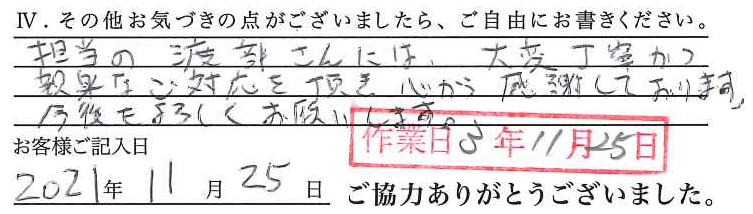 Ⅳ．その他お気づきの点がございましたら、ご自由にお書きください。
担当の渡部さんには、大変丁寧かつ
親身なご対応を頂き心から感謝しております。
今後もよろしくお願いします。
作業日 3年11月25日
お客様ご記入日
2021年 11月 25日 ご協力ありがとうございました。